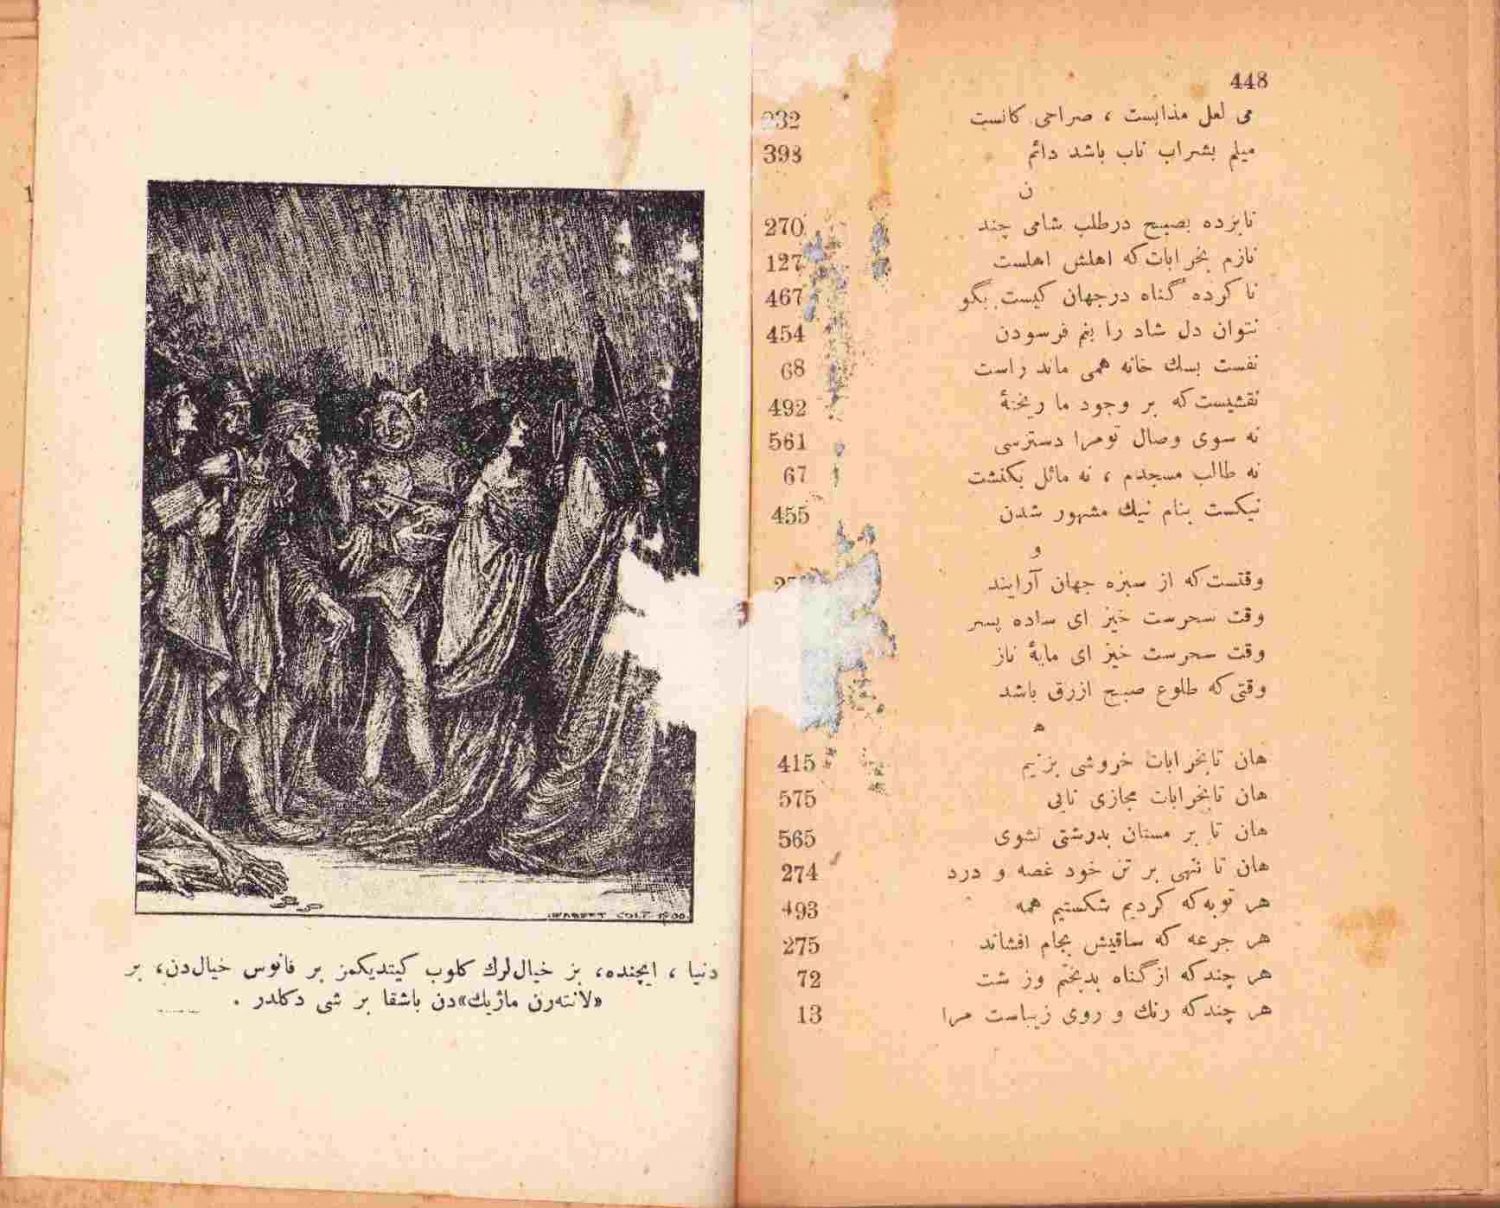 448
می لعل مذابست ، صراحی کانست 232
میلم بشراب ناب باشد دائم 398
ن
نابرده بصبح درطلب شامی چند 270
نازم بخرابات که اهلش اهلست 127
ناکرده گناه درجهان کیست بگو 467
نتوان دل شاد را بغم فرسودن 454
نفست بسك خانه همی ماند راست 68
نقشیست که بر وجود ما ریختهٔ 492
نه سوی وصال تومرا دسترسی 561
نه طالب مسجدم ، نه مائل بکنشت 67
نیکست بنام نیك مشهور شدن 455
و
وقتست که از سبزه جهان آرایند
وقت سحرست خیز ای ساده پسر
وقت سحرست خیز ای مایهٔ ناز
وقتی که طلوع صبح ازرق باشد
ه
هان تابخرابات خروشی بزنیم 415
هان تابخرابات مجازی نایی 575
هان تا بر مستان بدرشتی نشوی 565
هان تا ننهی بر تن خود غصه و درد 274
هر توبه که کردیم شکستیم همه 493
هر جرعه که ساقیش بجام افشاند 275
هر چندکه ازگناه بدبختم وزشت 72
هر چندکه رنك و روی زیباست مرا 13
دنیا ، ایچنده، بز خیال‌لرك كلوب كیتدیكمز بر فانوس خیال‌دن، بر
«لانته‌رن ماژیك»دن باشقا بر شی دكلدر .